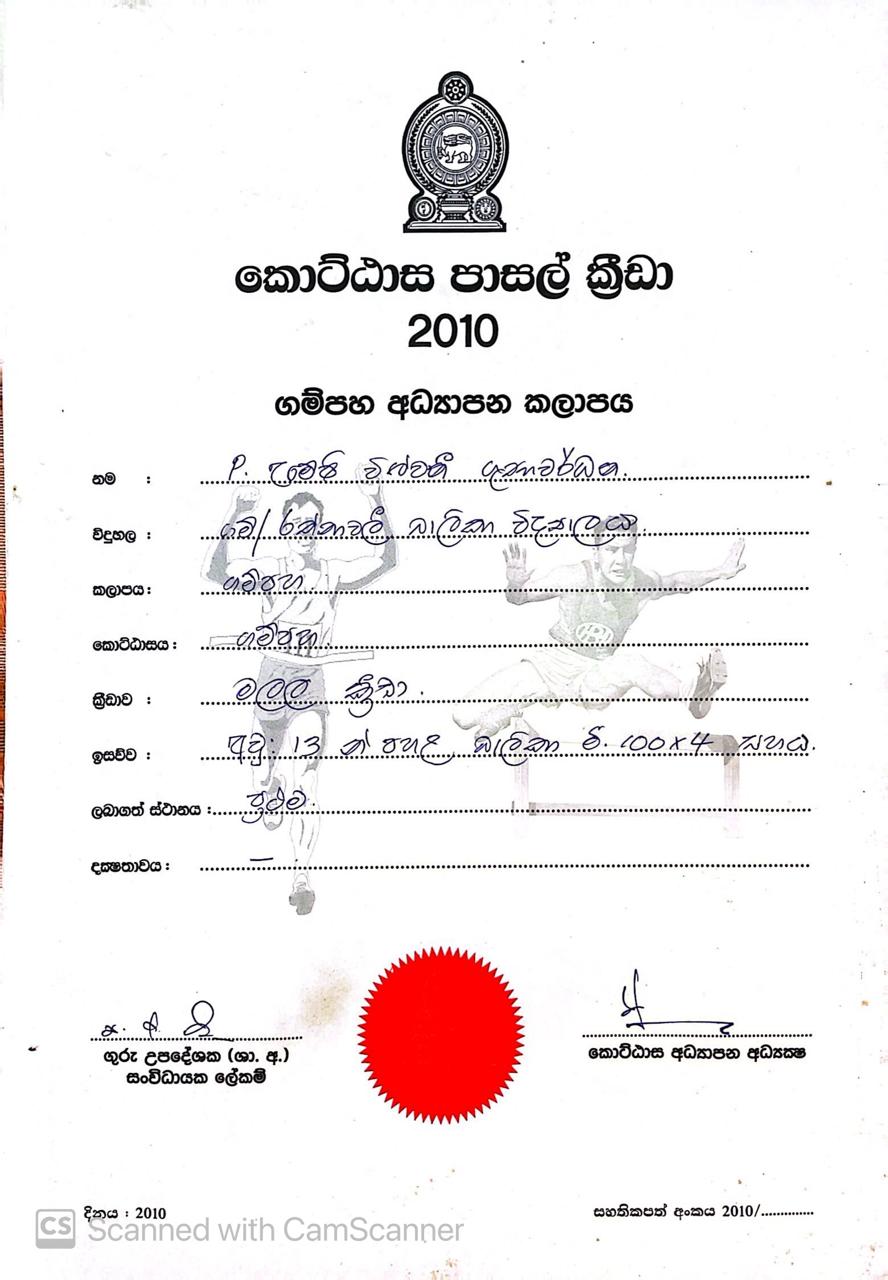 කොට්ඨාස පාසල් ක්‍රීඩා
2010
ගම්පහ අධ්‍යාපන කලාපය
නම : P. උමේෂි විශ්වනී ගුණවර්ධන.
විදුහල : ගම්/ රත්නාවලී බාලිකා විද්‍යාලය.
කලාපය : ගම්පහ
කොට්ඨාසය : ගම්පහ.
ක්‍රීඩාව : මලල ක්‍රීඩා.
ඉසව්ව : අවු: 13 න් පහළ බාලිකා මී. 100×4 සහාය.
ලබාගත් ස්ථානය : ප්‍රථම.
දක්‍ෂතාවය : –
ගුරු උපදේශක (ශා. අ.)
සංවිධායක ලේකම්
කොට්ඨාස අධ්‍යාපන අධ්‍යක්‍ෂ
දිනය : 2010
සහතිකපත් අංකය 2010/..............
CS Scanned with CamScanner